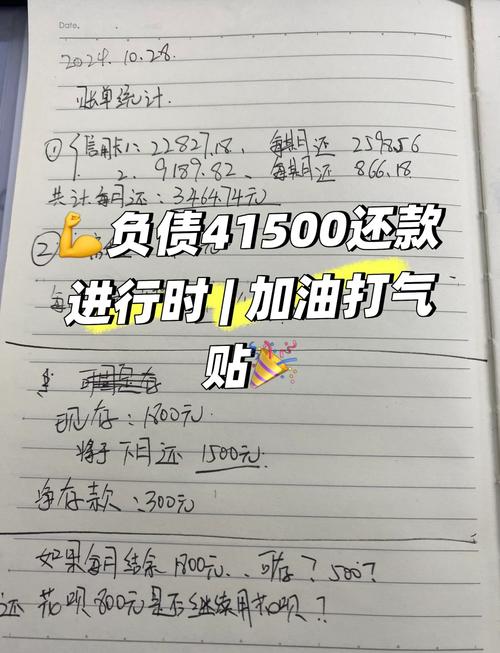 Date.
2024.10.28.
账单统计.
① 信用卡1: 22827.18, 每期还 2598.56
2. 9189.82, 每期还 866.18
共计每月还: 3464.74元
💪负债41500还款
② 元
进行时 | 加油打气
每
贴🎉
现存: 1800元.
将于下月还 1500元.
净存款: 300元
如果每月结余 1800元.. 可存? 500?
还 花呗 800元是否继续用花呗?